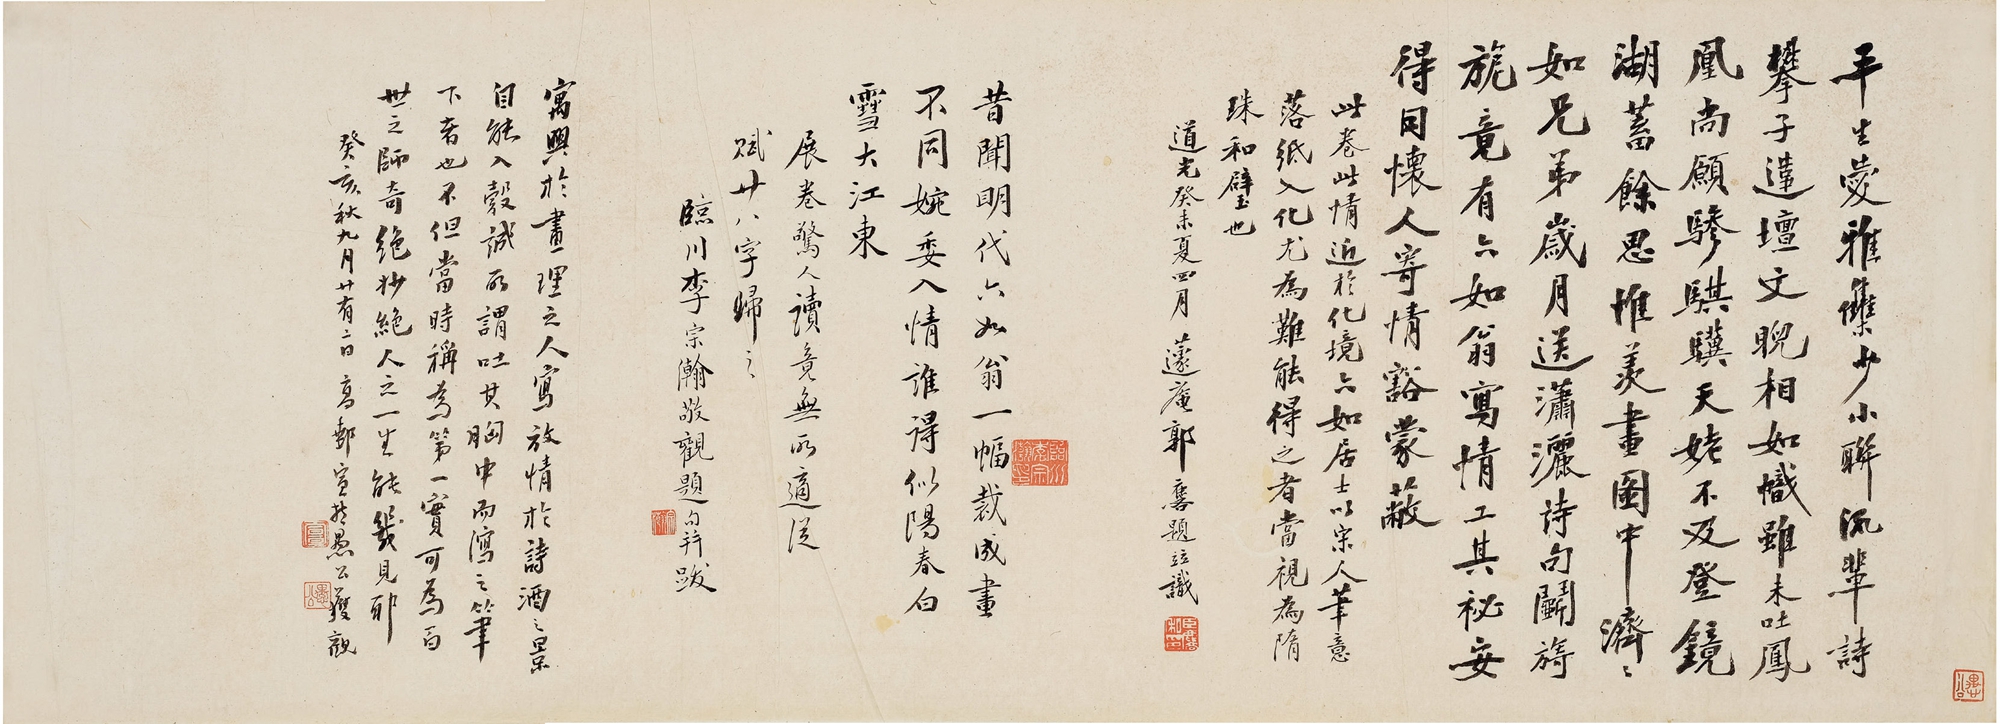 平生愛雅集少小聯流輩詩
攀子蓮壇文睨相如幟雖未吐鳳
凰尚願驂騏驥天姥不及登鏡
湖蓄餘思惟羨畫圖中濟〻
如兄弟歲月送瀟灑詩句鬭旖
旎竟有六如翁寫情工其祕安
得同懷人寄情豁蒙蔽
此卷此情近於化境六如居士以宋人筆意
落紙入化尤為難能得之者當視為隋
珠和璧也
道光癸未夏四月蘧庵郭麐題並識
昔聞明代六如翁一幅裁成畫
不同婉委入情誰得似陽春白
雪大江東
展卷驚人讀竟無所適從
賦廿八字歸之
臨川李宗瀚敬觀題句并跋
寓興於畫理之人寫放情於詩酒之景
自能入彀誠所謂吐其胸中而瀉之筆
下者也不但當時稱為第一實可為百
世之師奇絕妙絕人之一生能幾見耶
癸亥秋九月廿有二日高郵宣愚公獲觀